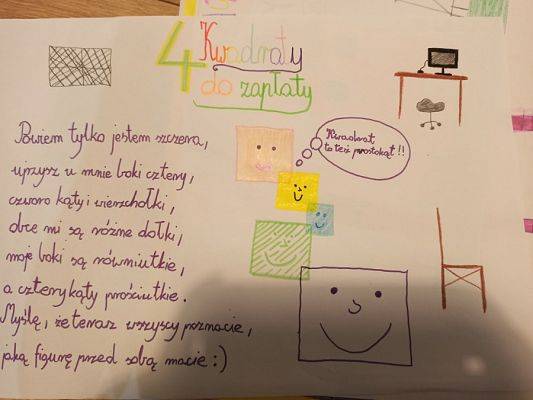 4 Kwadraty
do zapłaty
Kwadrat
to też prostokąt!!
Powiem tylko jestem szczera,
ujrzysz u mnie boki cztery,
czworo kąty i wierzchołki,
obce mi są różne dołki,
moje boki są równiutkie,
a cztery kąty prościutkie.
Myślę, że teraz wszyscy poznacie,
jaką figurę przed sobą macie :)